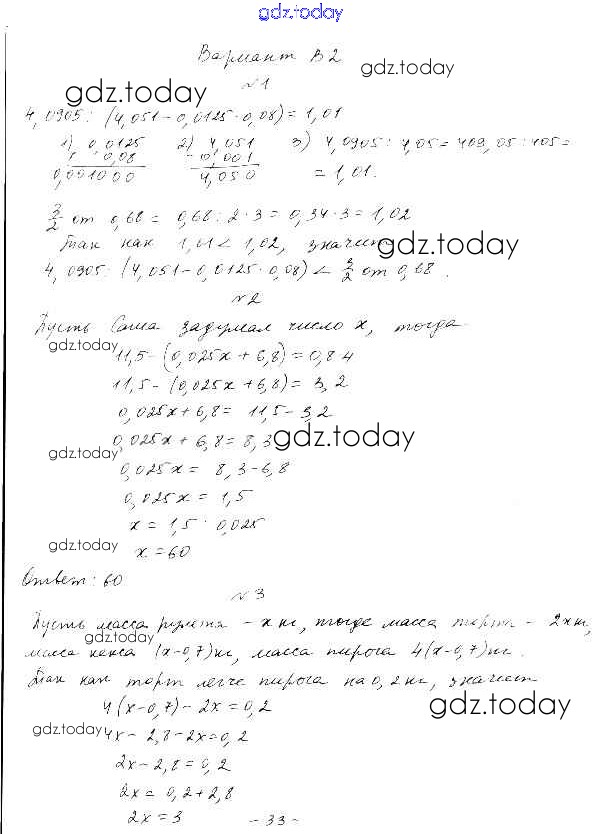 gdz.today
Вариант В2
gdz.today
№1
gdz.today
4,0905 : (4,051 - 0,0125 · 0,08) = 1,01
1) 0,0125 2) 4,051 3) 4,0905 : 4,05 = 409,05 : 405 =
0,08 - 0,001
0,001000 4,050 = 1,01.
3/2 от 0,68 = 0,68 : 2 · 3 = 0,34 · 3 = 1,02
Так как 1,01 < 1,02, значит
gdz.today
4,0905 : (4,051 - 0,0125 · 0,08) < 3/2 от 0,68.
№2
Пусть Саша задумал число x, тогда
gdz.today
11,5 - (0,025x + 6,8) = 0,8 · 4
11,5 - (0,025x + 6,8) = 3,2
0,025x + 6,8 = 11,5 - 3,2
0,025x + 6,8 = 8,3
gdz.today
gdz.today
0,025x = 8,3 - 6,8
0,025x = 1,5
x = 1,5 : 0,025
gdz.today
x = 60
Ответ: 60
№3
Пусть масса рулета - x кг, тогда масса торта - 2x кг,
gdz.today
масса кекса (x - 0,7) кг, масса пирога 4(x - 0,7) кг.
Так как торт легче пирога на 0,2 кг, значит
4(x - 0,7) - 2x = 0,2
gdz.today
gdz.today
4x - 2,8 - 2x = 0,2
2x - 2,8 = 0,2
2x = 0,2 + 2,8
2x = 3
- 33 -